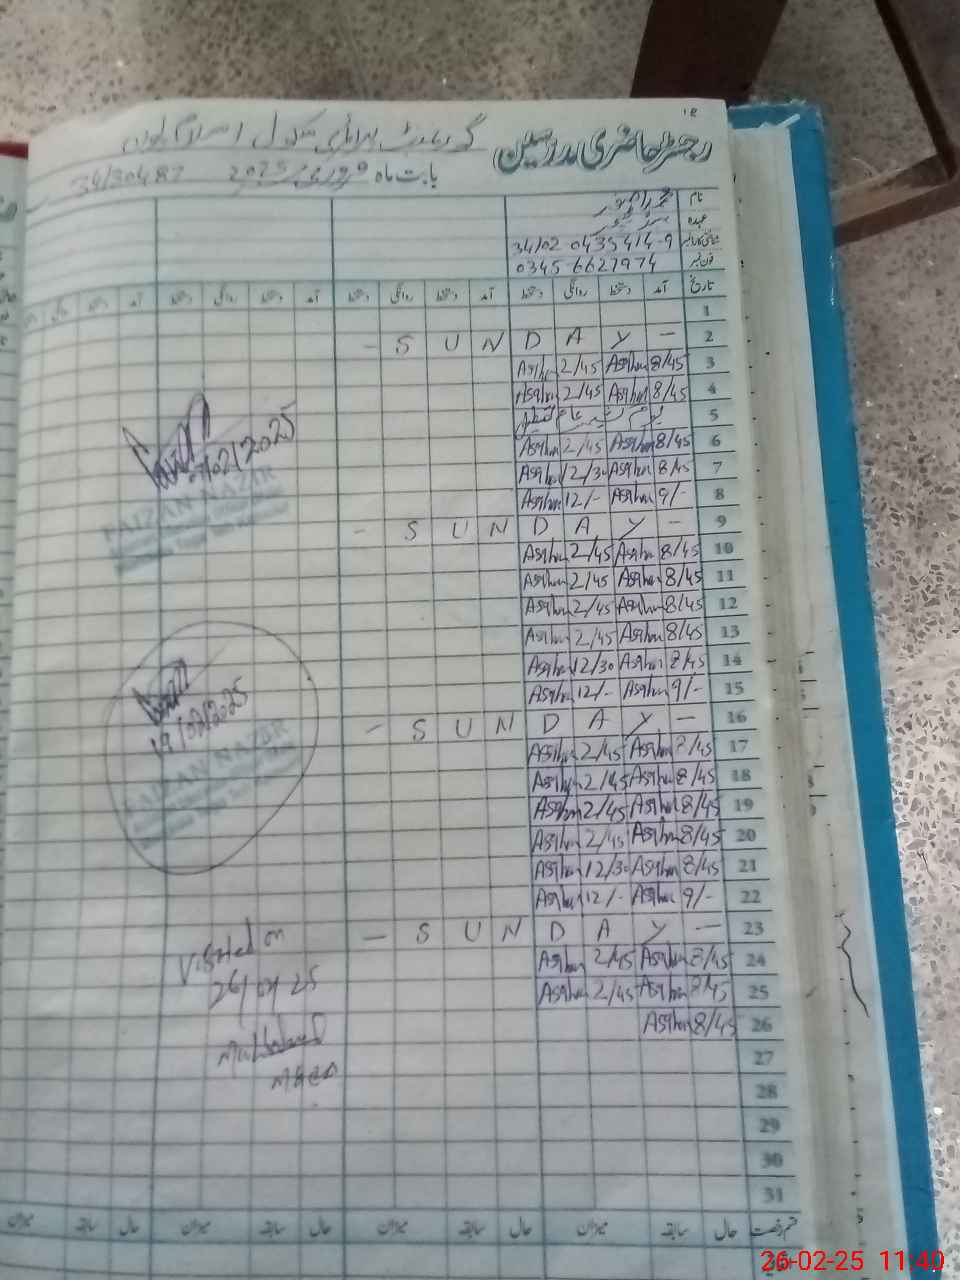 رجسٹر حاضری مدرسین گورنمنٹ پرائمری سکول
بابت ماہ فروری 2025 34130487
نام
عہدہ
34102-0435414-9
فون نمبر 0345 6627974
تاریخ آمد دستخط روانگی دستخط آمد دستخط روانگی دستخط آمد دستخط روانگی دستخط آمد
1
2 - S U N D A Y -
3 8/45 Asghar 2/45 Asghar
4 8/45 Asghar 2/45 Asghar
5
6 8/45 Asghar 2/45 Asghar
7 8/45 Asghar 12/30 Asghar
8 9/- Asghar 12/- Asghar
9 - S U N D A Y -
10 8/45 Asghar 2/45 Asghar
11 8/45 Asghar 2/45 Asghar
12 8/45 Asghar 2/45 Asghar
13 8/45 Asghar 2/45 Asghar
14 8/45 Asghar 12/30 Asghar
15 9/- Asghar 12/- Asghar
16 - S U N D A Y -
17 8/45 Asghar 2/45 Asghar
18 8/45 Asghar 2/45 Asghar
19 8/45 Asghar 2/45 Asghar
20 8/45 Asghar 2/45 Asghar
21 8/45 Asghar 12/30 Asghar
22 9/- Asghar 12/- Asghar
23 - S U N D A Y -
24 8/45 Asghar 2/45 Asghar
25 8/45 Asghar 2/45 Asghar
26 8/45 Asghar
27
28
29
30
31
قسم رخصت حال سابقہ میزان حال سابقہ میزان حال سابقہ میزان حال سابقہ میزان
/02/2025
FAIZAN NAZIR
19/02/2025
FAIZAN NAZIR
Visited on
26/02/25
MEA
26-02-25 11:40